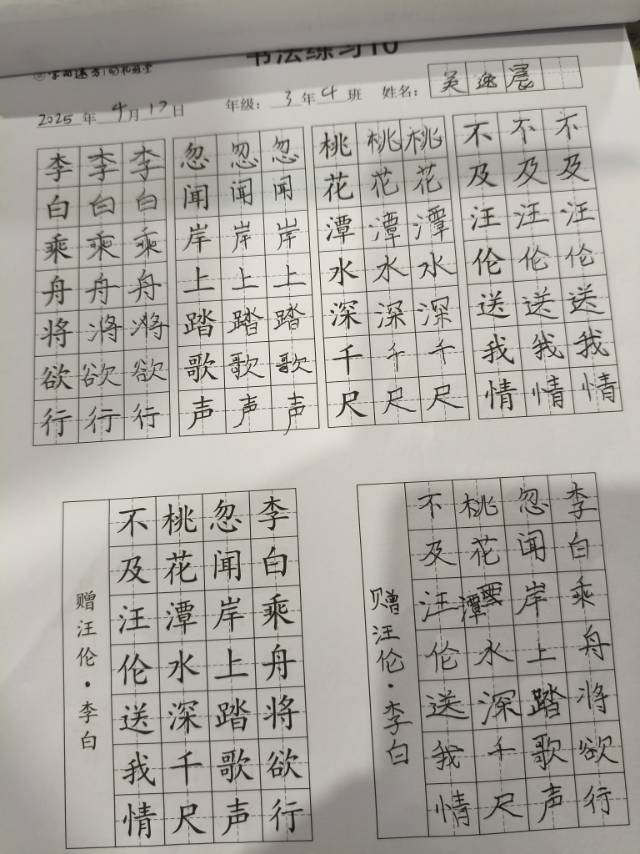 书法练习10
2025年 4月 17日 年级：3年4班 姓名：吴逸晨
李李李
白白白
乘乘乘
舟舟舟
将将将
欲欲欲
行行行
忽忽忽
闻闻闻
岸岸岸
上上上
踏踏踏
歌歌歌
声声声
桃桃桃
花花花
潭潭潭
水水水
深深深
千千千
尺尺尺
不不不
及及及
汪汪汪
伦伦伦
送送送
我我我
情情情
李白乘舟将欲行
忽闻岸上踏歌声
桃花潭水深千尺
不及汪伦送我情
赠汪伦·李白
李白乘舟将欲行
忽闻岸上踏歌声
桃花潭水深千尺
不及汪伦送我情
赠汪伦·李白